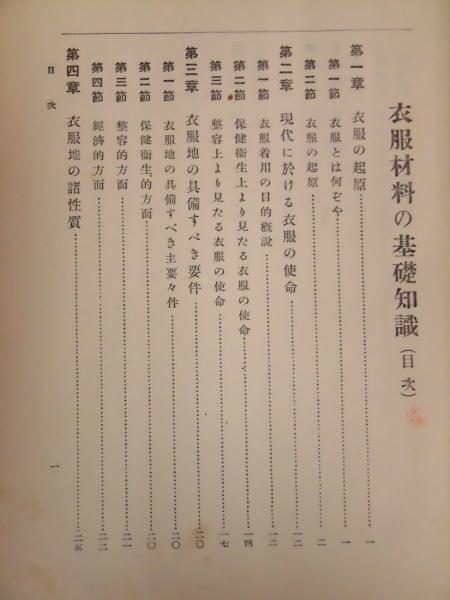 衣服材料の基礎知識（目次）
第一章 衣服の起原……一
第一節 衣服とは何ぞや……一
第二節 衣服の起原……二
第二章 現代に於ける衣服の使命……一二
第一節 衣服着用の目的概説……一二
第二節 保健衞生上より見たる衣服の使命……一四
第三節 整容上より見たる衣服の使命……一七
第三章 衣服地の具備すべき要件……二〇
第一節 衣服地の具備すべき主要々件……二〇
第二節 保健衞生的方面……二〇
第三節 整容的方面……二一
第四節 經濟的方面……二二
第四章 衣服地の諸性質……二五
目次
一